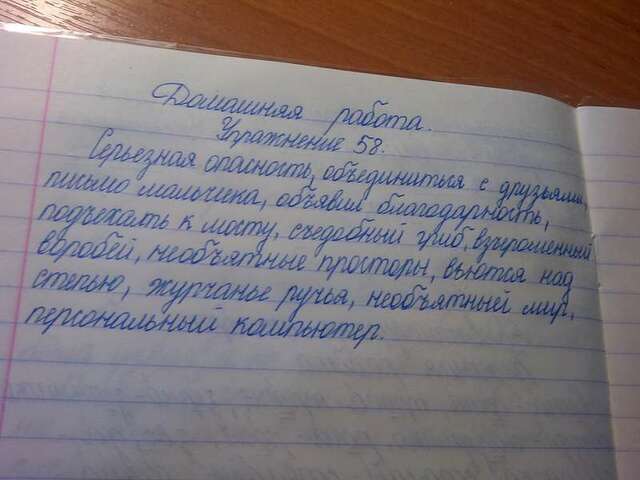 Домашняя работа.
Упражнение 58.
Серьезная опасность, объединиться с друзьями,
письмо мальчика, объявил благодарность,
подъехать к мосту, съедобный гриб, взъерошенный
воробей, необъятные просторы, вьются над
степью, журчанье ручья, необъятный мир,
персональный компьютер.